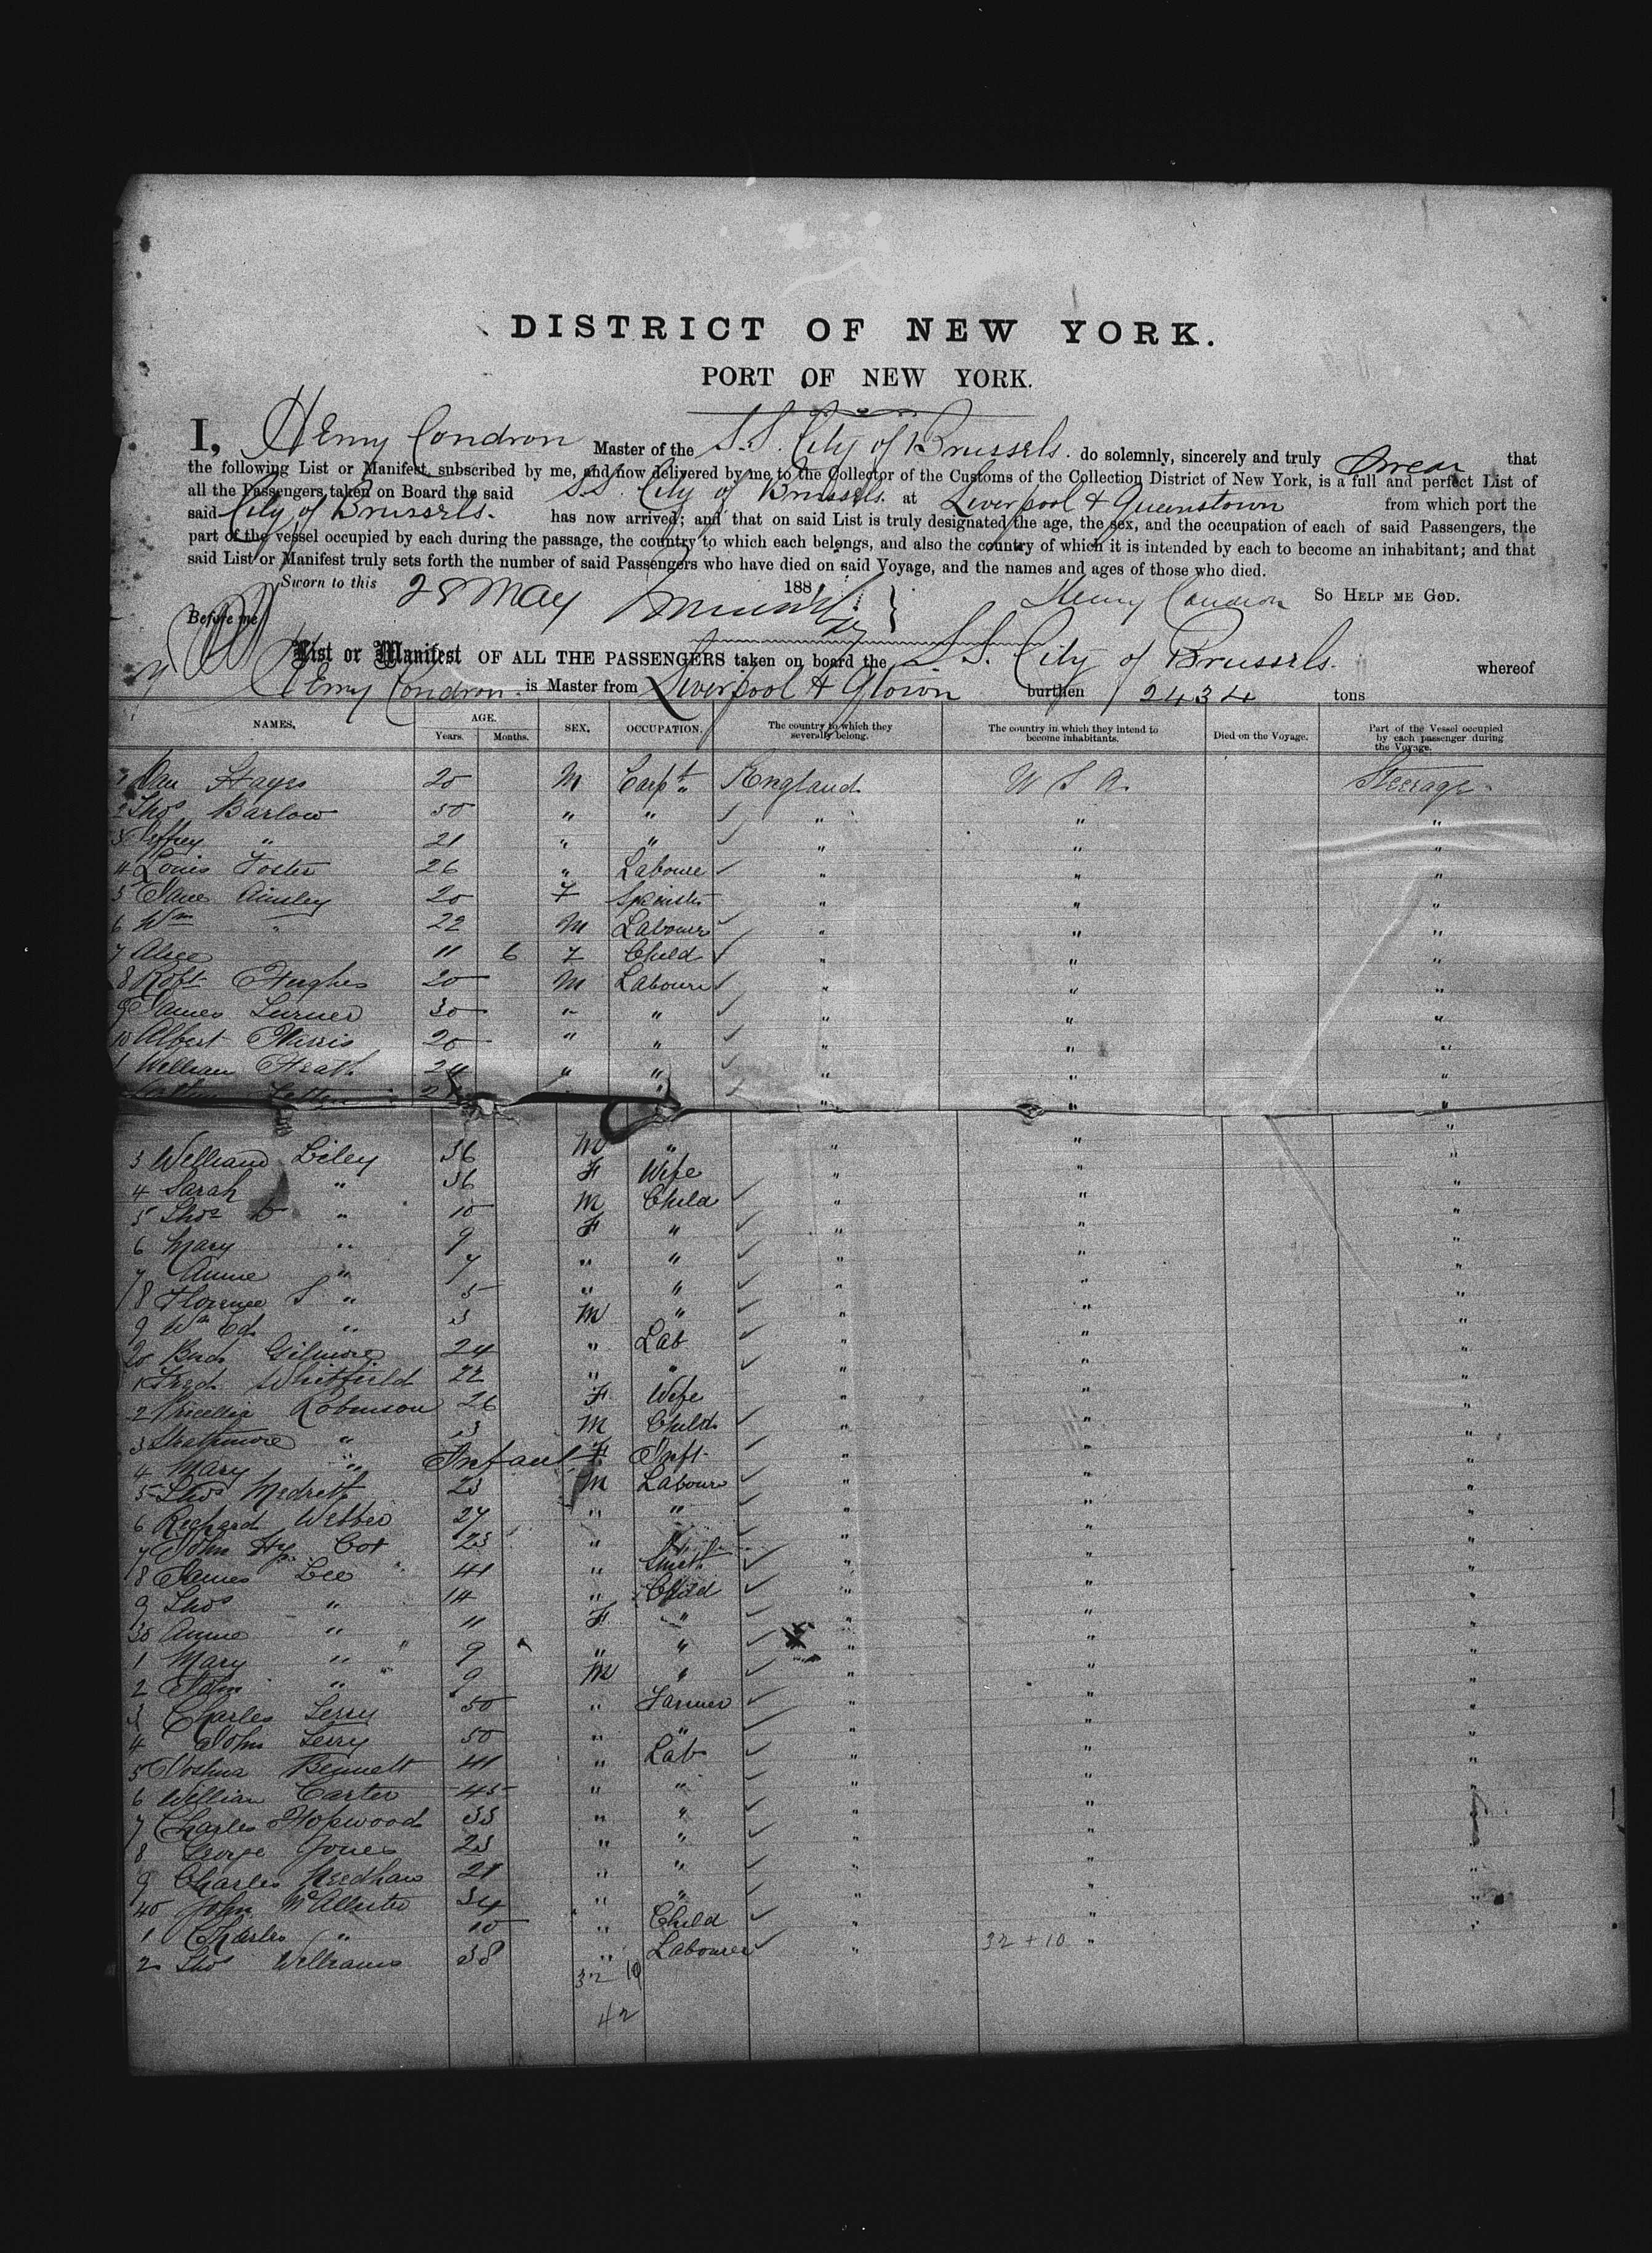 DISTRICT OF NEW YORK.
PORT OF NEW YORK.
I, Henry Condron Master of the S.S. City of Brussels. do solemnly, sincerely and truly swear that
the following List or Manifest, subscribed by me, and now delivered by me to the Collector of the Customs of the Collection District of New York, is a full and perfect List of
all the Passengers taken on Board the said S.S. City of Brussels. at Liverpool & Queenstown from which port the
said City of Brussels. has now arrived; and that on said List is truly designated the age, the sex, and the occupation of each of said Passengers, the
part of the vessel occupied by each during the passage, the country to which each belongs, and also the country of which it is intended by each to become an inhabitant; and that
said List or Manifest truly sets forth the number of said Passengers who have died on said Voyage, and the names and ages of those who died.
Sworn to this 28 May 188 Henry Condron SO HELP ME GOD.
Before me
List or Manifest OF ALL THE PASSENGERS taken on board the S.S. City of Brussels. whereof
Henry Condron. is Master from Liverpool & Qtown burthen 2434 tons
NAMES. AGE. SEX. OCCUPATION. The country to which they severally belong. The country in which they intend to become inhabitants. Died on the Voyage. Part of the Vessel occupied by each passenger during the Voyage.
Years. Months.
Hayes 20 M Carpt England U S A. Steerage
2 Thos Barlow 50 " " " " "
3 Jeffrey " 21 " " " " "
4 Louis Foster 26 " Laboure " " "
5 Jane Ainsley 20 F Spinster " " "
6 Wm " 22 M Labourer " " "
7 Alice 11 6 F Child " " "
8 Robt Hughes 20 M Labourer " " "
9 James Turner 30 " " " " "
10 Albert 20 " " " " "
1 William Heath 24 " " " " "
3 William Liley 36 M " " " "
4 Sarah " 36 F Wife " " "
5 Thos " 10 M Child " " "
6 Mary " 9 F " " " "
7 Annie " 7 " " " " "
8 Florence S " 5 " " " " "
9 Wm Ed. " 3 M " " " "
20 Gilmore 24 " Lab " " "
1 Fred Whitfield 22 " " " " "
2 Robinson 26 F Wife " " "
3 Strathmore " 3 M Child " " "
4 Mary " Infant F Inft. " " "
5 Thos 23 M Labourer " " "
6 Richard Webber 27 " " " " "
7 John Hy. Cox 23 " " " "
8 James Lee 41 " Smith " " "
9 Thos " 14 " Child " " "
30 Annie " 11 F " " " "
1 Mary " 9 " " " " "
2 John " 9 M " " " "
3 Charles Terry 50 " Farmer " " "
4 John Terry 50 " " " " "
5 Joshua Bennett 41 " Lab " " "
6 William Carter 45 " " " " "
7 Charles Hopwood 33 " " " " "
8 George Jones 23 " " " " "
9 Charles Needham 21 " " " " "
40 John McAllister 34 " " " " "
1 Charles " 10 " Child " " "
2 Thos Williams 38 " Labourer " 32 + 10 "
32 10
42